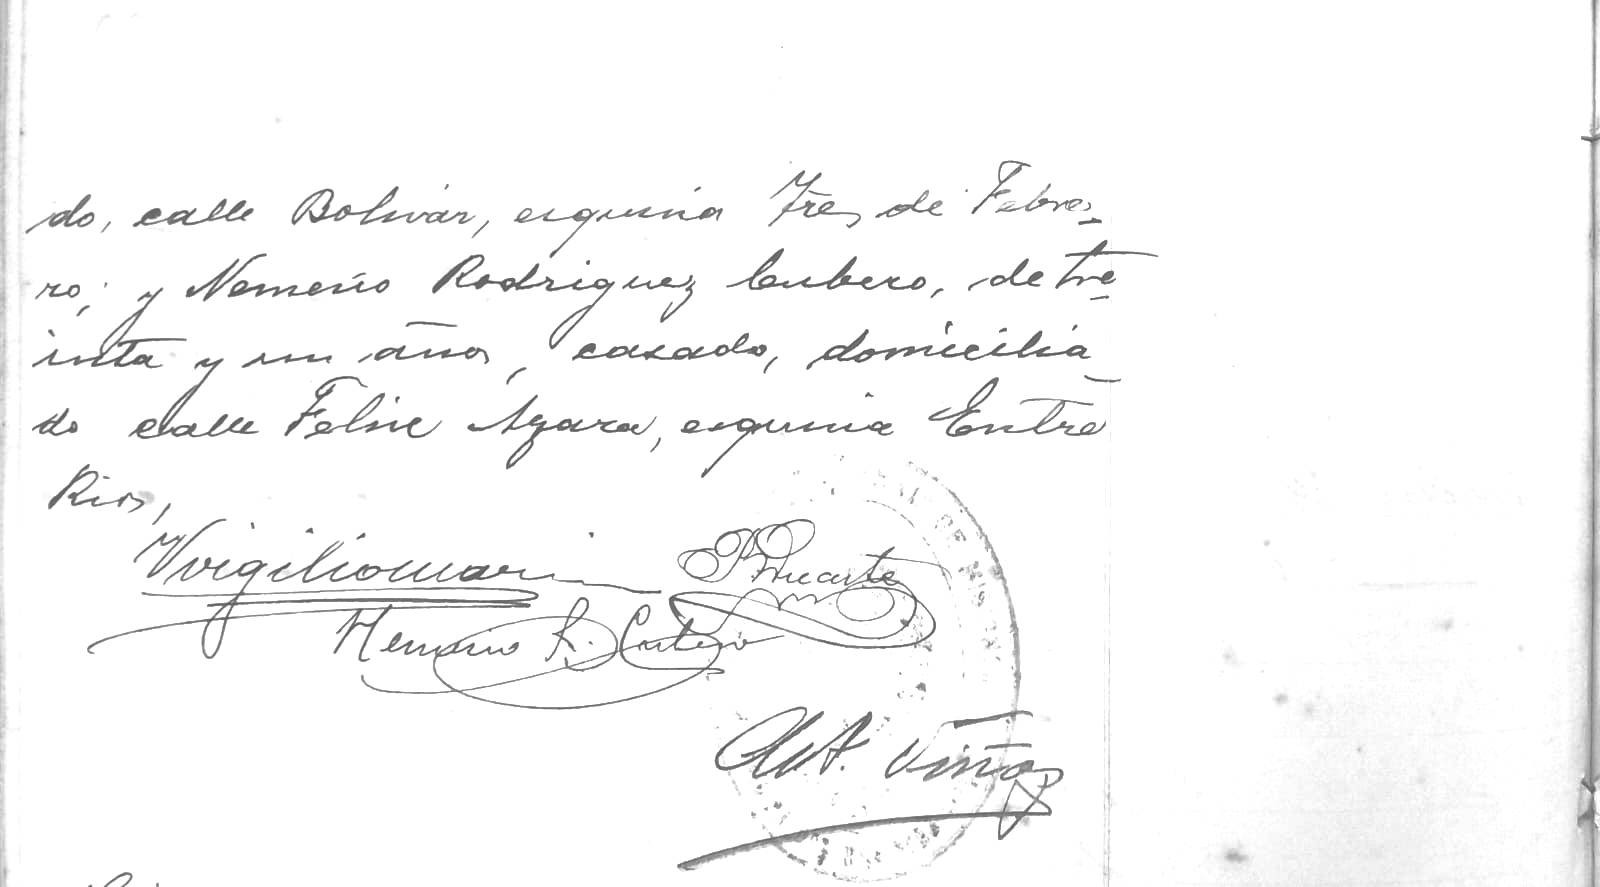 do, calle Bolivar, esquina Tres de Febre-
ro; y Nemesio Rodriguez Cubero, de tre-
inta y un años, casado, domicilia-
do calle Felix Azara, esquina Entre
Rios,
Virgilio Marin Duarte
Nemesio R. Cubero
Ant. Viñas